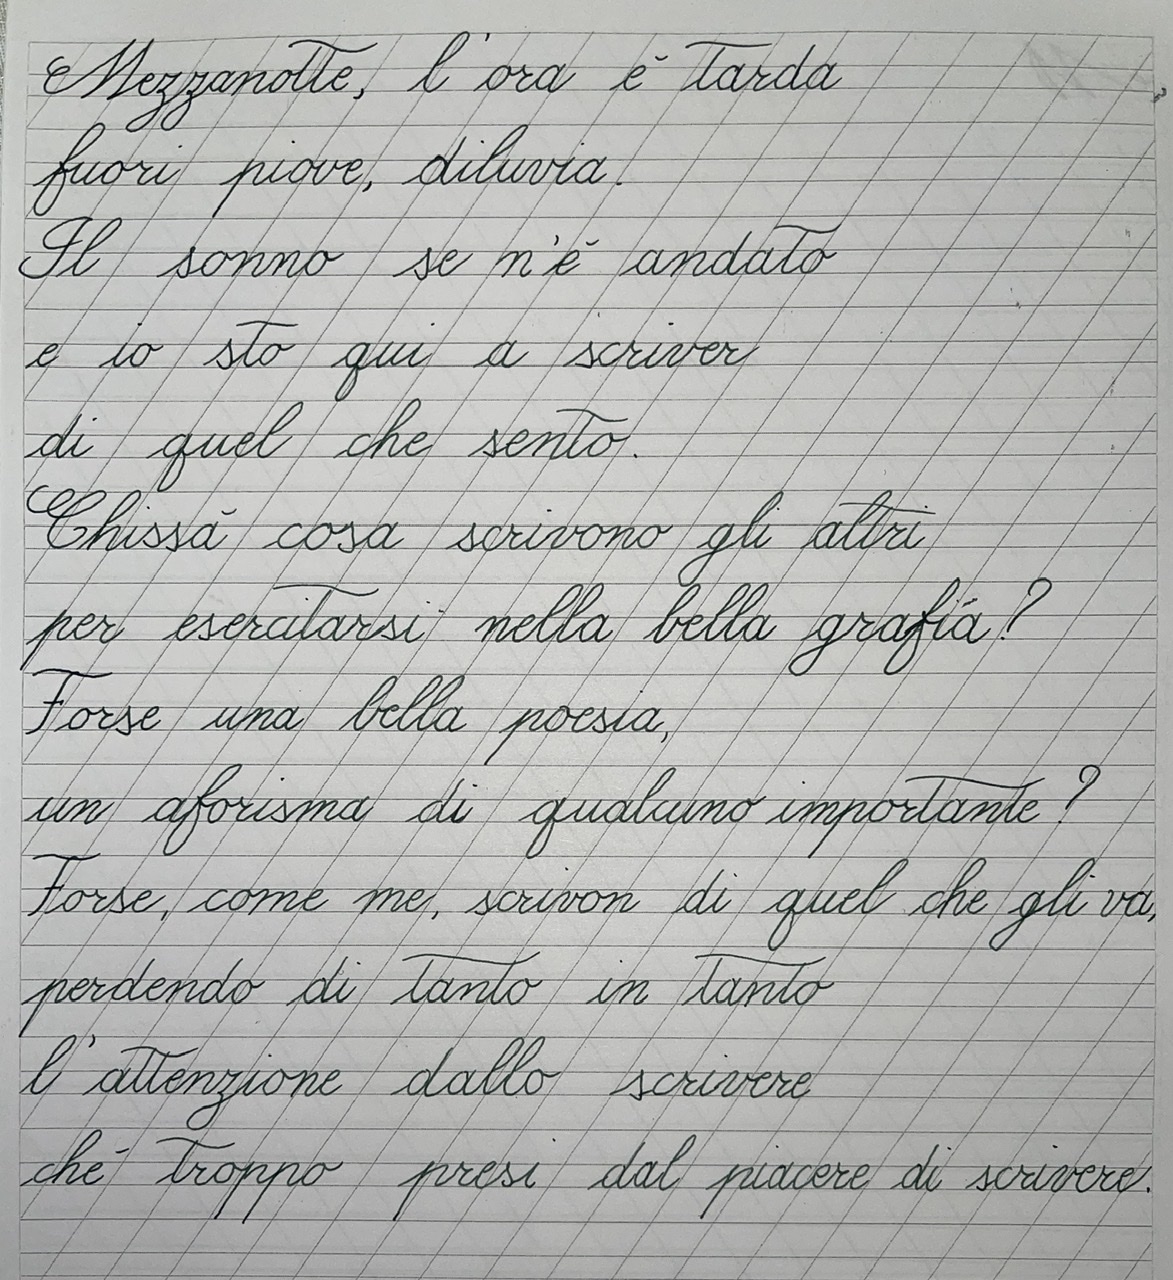 Mezzanotte, l'ora è tarda
fuori piove, diluvia.
Il sonno se n'è andato
e io sto qui a scriver
di quel che sento.
Chissà cosa scrivono gli altri
per esercitarsi nella bella grafia?
Forse una bella poesia,
un aforisma di qualcuno importante?
Forse, come me, scrivon di quel che gli va,
perdendo di tanto in tanto
l'attenzione dallo scrivere
ché troppo presi dal piacere di scrivere.